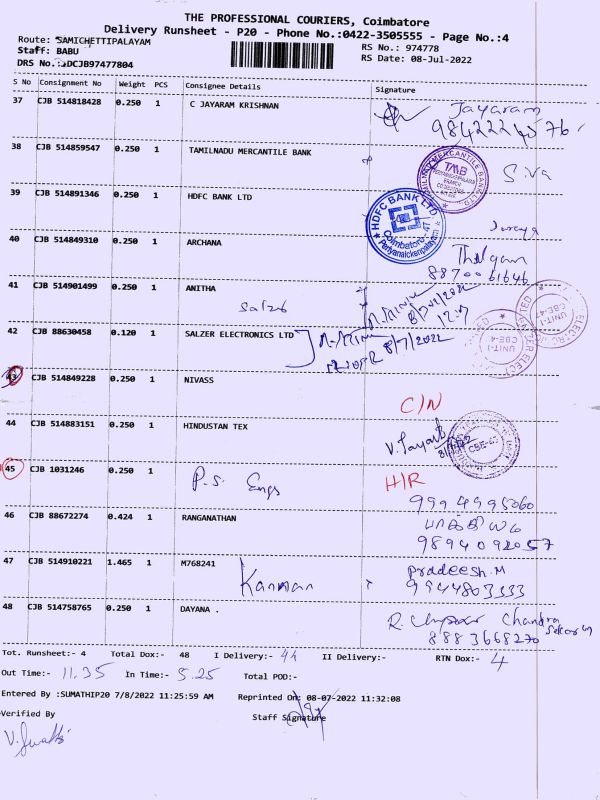 THE PROFESSIONAL COURIERS, Coimbatore
Delivery Runsheet - P20 - Phone No.:0422-3505555 - Page No.:4
Route: SAMICHETTIPALAYAM
Staff: BABU
RS No.: 974778
DRS No.: DCJB97477804
RS Date: 08-Jul-2022
S No Consignment No Weight PCS Consignee Details Signature
37 CJB 514818428 0.250 1 C JAYARAM KRISHNAN Jayaram
38 CJB 514859547 0.250 1 TAMILNADU MERCANTILE BANK Siva
TMB
39 CJB 514891346 0.250 1 HDFC BANK LTD
HDFC BANK LTD
Coimbatore
Periyanaickenpalayam
40 CJB 514849310 0.250 1 ARCHANA
88700 61646
41 CJB 514901499 0.250 1 ANITHA
Salzer
8/7/2022
42 CJB 88630458 0.120 1 SALZER ELECTRONICS LTD 8/7/2022
UNIT-1
CBE-4
UNIT-1
CBE-4
43 CJB 514849228 0.250 1 NIVASS
C/N
44 CJB 514883151 0.250 1 HINDUSTAN TEX
45 CJB 1031246 0.250 1 P.S. Engs H/R
9994995060
46 CJB 88672274 0.424 1 RANGANATHAN
47 CJB 514910221 1.465 1 M768241 Pradeesh.M
Kannan 9944803333
48 CJB 514758765 0.250 1 DAYANA . Chandra
8883668270
Tot. Runsheet:- 4 Total Dox:- 48 I Delivery:- 44 II Delivery:- RTN Dox:- 4
Out Time:- 11.35 In Time:- 5.25 Total POD:-
Entered By :SUMATHIP20 7/8/2022 11:25:59 AM Reprinted On: 08-07-2022 11:32:08
Verified By Staff Signature